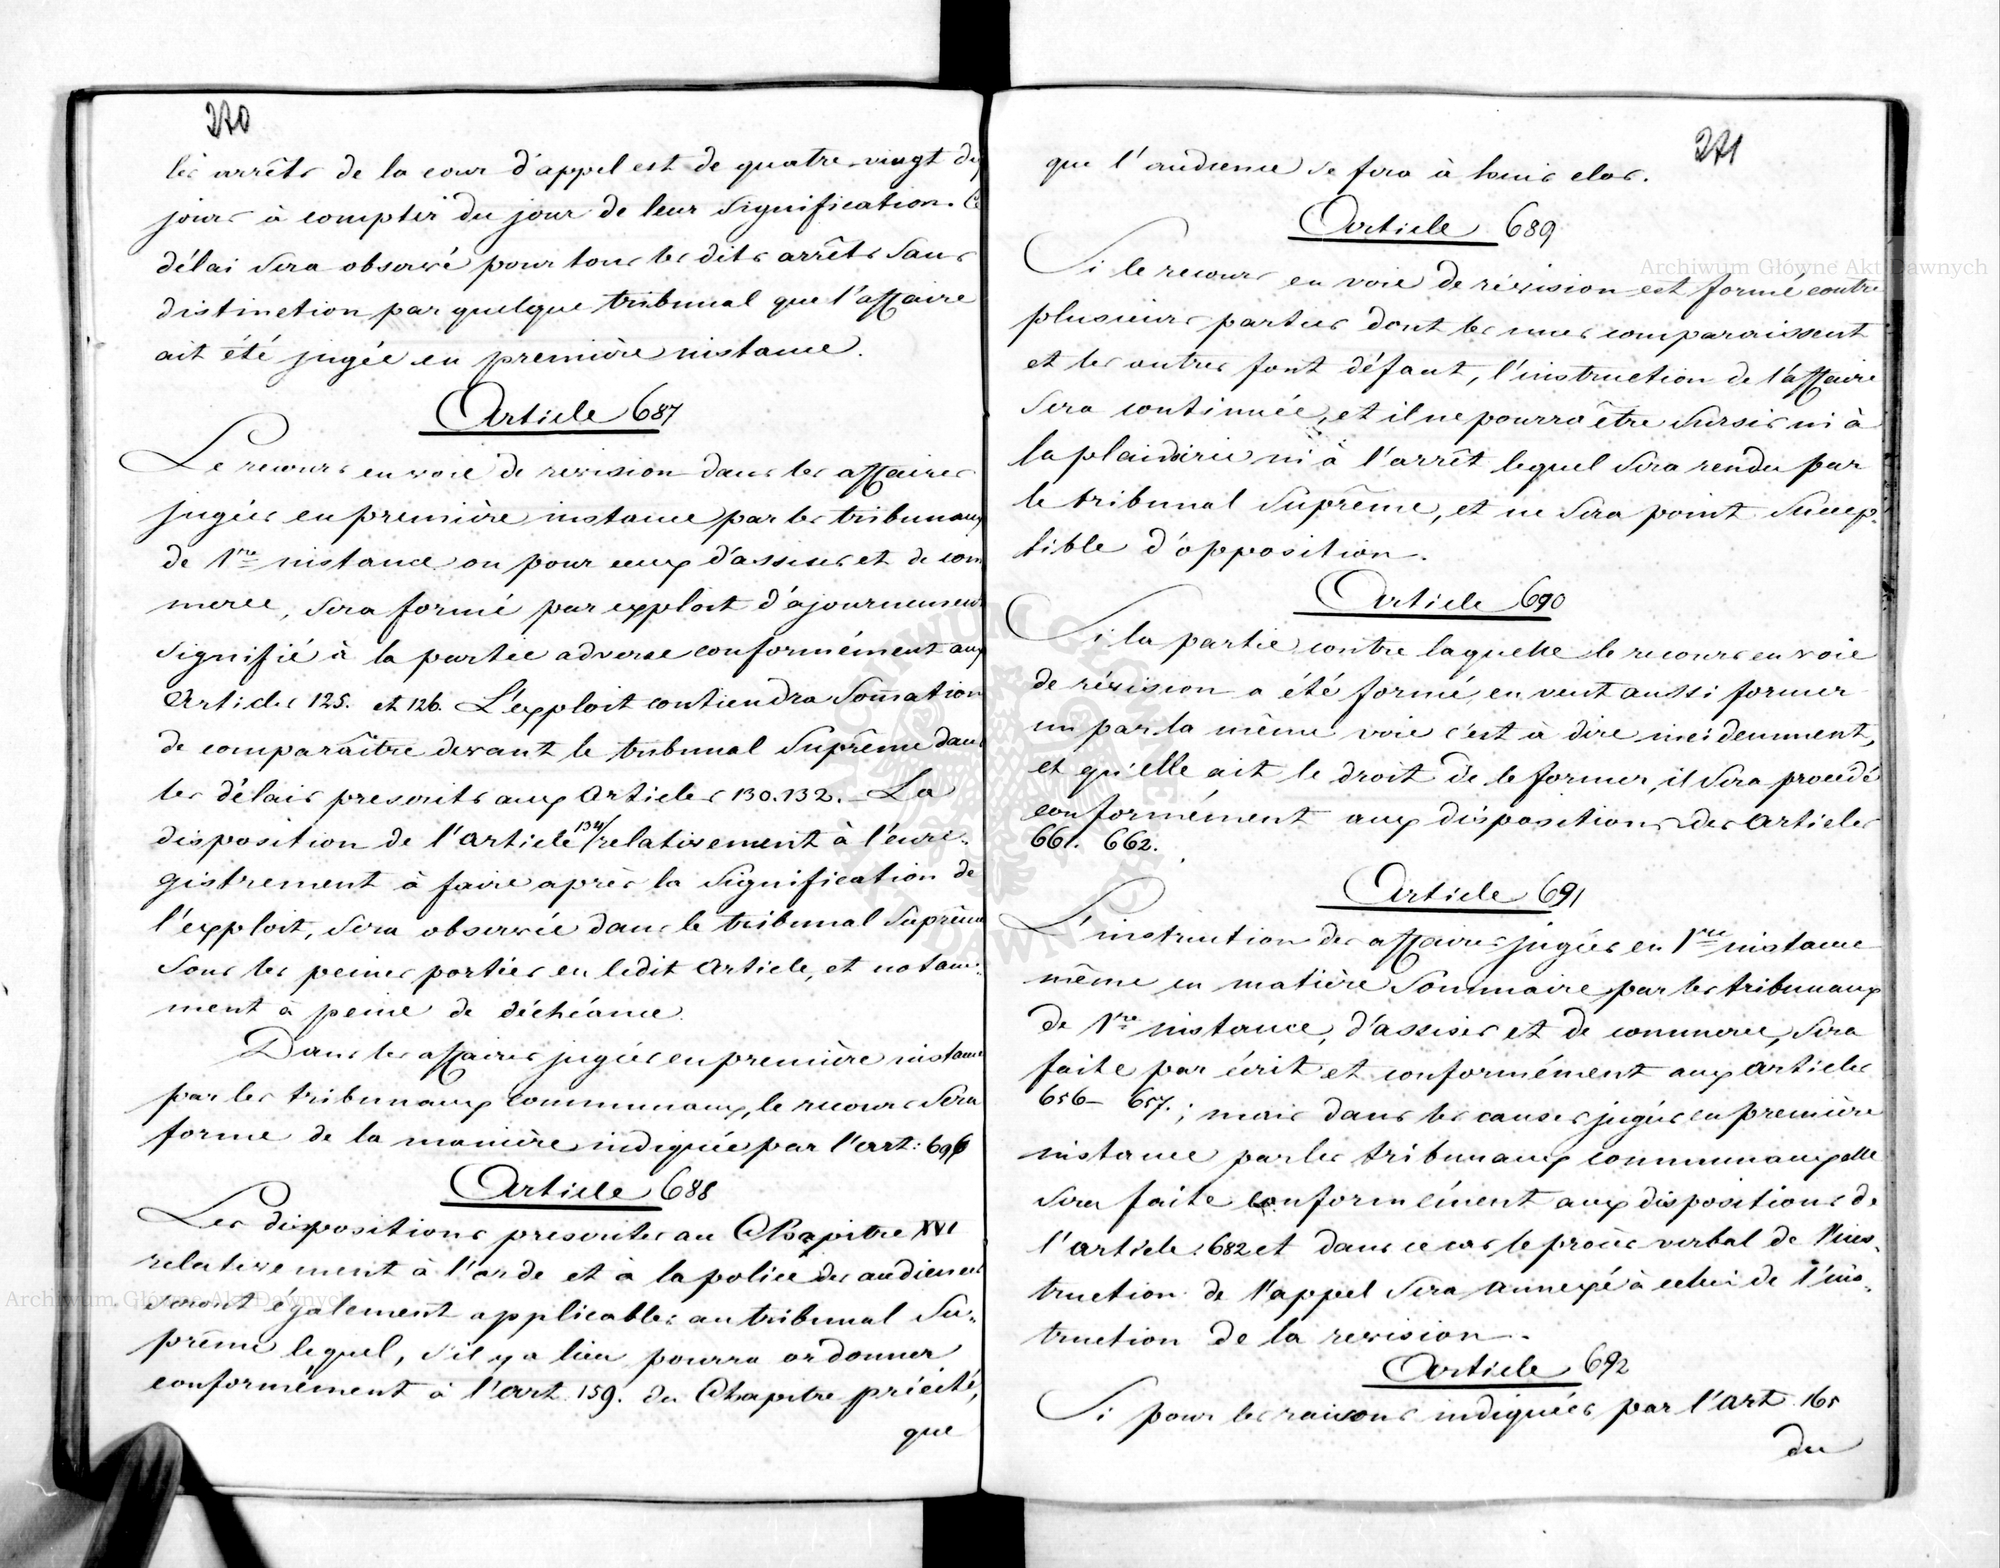 270
les arrêts de la cour d'appel est de quatre-vingt dix
jours à compter du jour de leur signification. Ce
délai sera observé pour tous les dits arrêts sans
distinction par quelque tribunal que l'affaire
ait été jugée en première instance.
Article 687
Le recours en voie de revision dans les affaires
jugées en première instance par les tribunaux
de 1re instance ou pour ceux d'assises et de com
merce, sera formé par exploit d'ajournement
signifié à la partie adverse conformément aux
Articles 125. et 126. L'exploit contiendra Sommation
de comparaître devant le tribunal Suprême dans
les délais prescrits aux Articles 130.132. - La
disposition de l'article 134/ relativement à l'enre-
gistrement à faire après la signification de
l'exploit, sera observée dans le tribunal Suprême
sous les peines portées en ledit Article, et notam-
ment à peine de déchéance.
Dans les affaires jugées en première instance
par les tribunaux communaux, le recours sera
forme de la manière indiquée par l'art: 696
Article 688
Les dispositions prescrites au Chapitre XVI
relativement à l'orde et à la police des audiences
seront également applicables au tribunal Su-
prême lequel, s'il y a lieu pourra ordonner
conformément à l'art. 159. du Chapitre précité,
que
271
que l'audience se fera à huis clos.
Article 689
Si le recours en voie de révision est formé contre
plusieurs parties dont les unes comparaissent
et les autres font défaut, l'instruction de l'affaire
sera continuée, et il ne pourra être sursis ni à
la plaidoirie ni à l'arrêt lequel sera rendu par
le tribunal Suprême, et ne sera point suscep-
tible d'opposition.
Article 690
Si la partie contre laquelle le recours en voie
de révision a été formé, en veut aussi former
un par la même voie c'est à dire incidemment,
et qu'elle ait le droit de le former, il sera procédé
conformément aux dispositions des Articles
661. 662.
Article 691
L'instruction des affaires jugées en 1re instance
même en matière Sommaire par les tribunaux
de 1re instance, d'assises et de commerce, sera
faite par écrit et conformément aux articles
656- 657.; mais dans les causes jugées en première
instance par les tribunaux communaux elle
sera faite conformément aux dispositions de
l'article 682 et dans ce cas le procès verbal de l'ins-
truction de l'appel sera annexé à celui de l'ins-
truction de la revision.
Article 692
Si pour les raisons indiquées par l'art. 165
du
Archiwum Główne Akt Dawnych
Archiwum Główne Akt Dawnych
ARCHIWUM GŁÓWNE AKT DAWNYCH